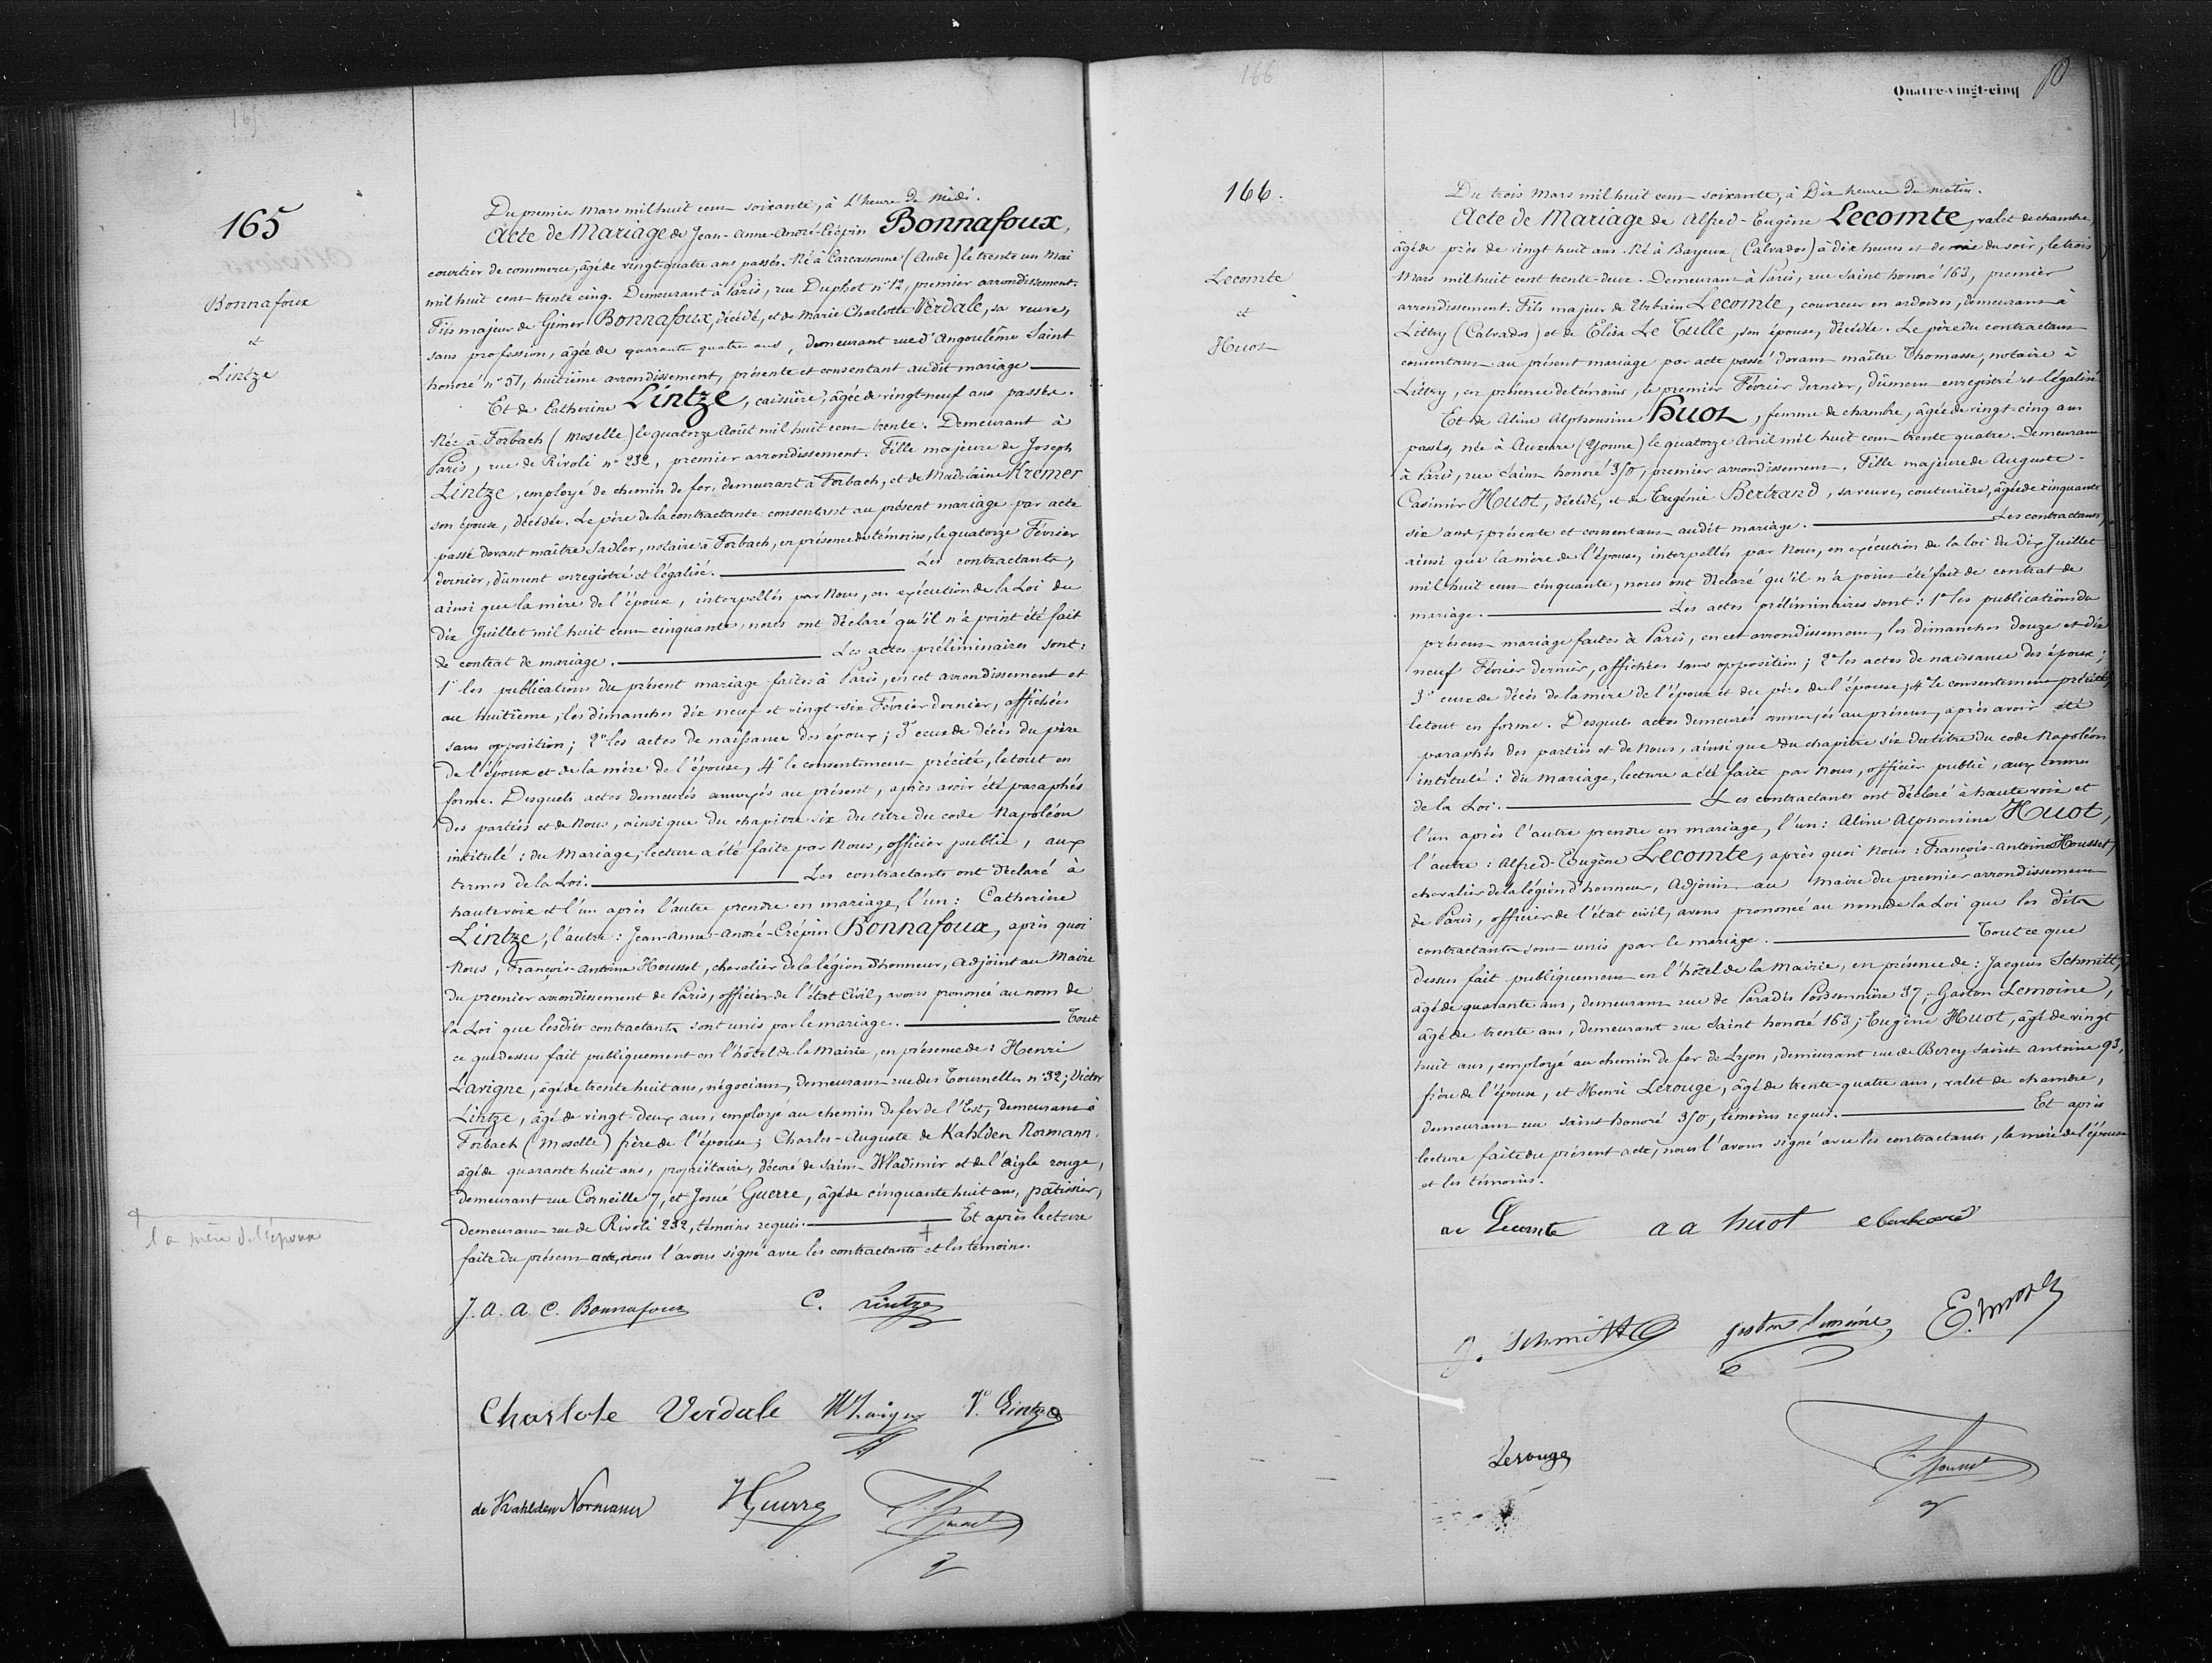 165
165
Bonnafoux
et
Lintze
Du premier Mars mil huit cent soixante, à l'heure de Midi.
Acte de Mariage de Jean-Anne-André-Crépin Bonnafoux,
courtier de commerce, âgé de vingt-quatre ans passés. Né à Carcassonne (Aude) le trente un Mai
mil huit cent trente cinq. Demeurant à Paris, rue Duphot n° 12, premier arrondissement.
Fils majeur de Gimer Bonnafoux, décédé, et de Marie Charlotte Verdale, sa veuve,
sans profession, âgée de quarante quatre ans, demeurant rue d'Angoulême Saint
honoré n° 51, huitième arrondissement, présente et consentant audit mariage
Et de Catherine Lintze, caissière, âgée de vingt neuf ans passés.
Née à Forbach (Moselle) le quatorze Août mil huit cent trente. Demeurant à
Paris, rue de Rivoli n° 232, premier arrondissement. Fille majeure de Joseph
Lintze, employé de chemin de fer, demeurant à Forbach, et de Madelaine Kremer
son épouse, décédée. Le père de la contractante consentant au présent mariage par acte
passé devant maître Sadler, notaire à Forbach, en présence de témoins, le quatorze Février
dernier, dûment enregistré et légalisé. Les contractants,
ainsi que la mère de l'époux, interpellés par Nous, en exécution de la Loi du
dix Juillet mil huit cent cinquante, nous ont déclaré qu'il n'a point été fait
de contrat de mariage. Les actes préliminaires sont:
1° les publications du présent mariage faites à Paris, en cet arrondissement et
au huitième, les dimanches dix neuf et vingt-six Février dernier, affichées
sans opposition; 2° les actes de naissance des époux; 3° ceux de décès du père
de l'époux et de la mère de l'épouse, 4° le consentement précité, le tout en
forme. Desquels actes demeurés annexés au présent, après avoir été paraphés
des parties et de Nous, ainsi que du chapitre six du titre du code Napoléon
intitulé: du Mariage, lecture a été faite par Nous, officier public, aux
termes de la Loi. Les contractants ont déclaré à
haute voix et l'un après l'autre prendre en mariage, l'un: Catherine
Lintze, l'autre: Jean-Anne-André-Crépin Bonnafoux, après quoi
Nous, François-Antoine Housset, chevalier de la légion d'honneur, Adjoint au Maire
du premier arrondissement de Paris, officier de l'état Civil, avons prononcé au nom de
la Loi que lesdits contractants sont unis par le mariage. Tout
ce que dessus fait publiquement en l'hôtel de la Mairie, en présence de: Henri
Lavigne, âgé de trente huit ans, négociant, demeurant rue des Tournelles n° 32; Victor
Lintze, âgé de vingt-deux ans, employé au chemin de fer de l'Est, demeurant à
Forbach (Moselle) frère de l'épouse; Charles-Auguste de Kahlden Normann,
âgé de quarante huit ans, propriétaire, décoré de Saint-Wladimir et de l'Aigle rouge,
demeurant rue Corneille 7, et Josué Guerre, âgé de cinquante huit ans, pâtissier,
demeurant rue de Rivoli 232, témoins requis. Et après lecture
faite du présent acte, nous l'avons signé avec les contractants + et les témoins.
+
la mère de l'époux
J. A. A. C. Bonnafoux C. Lintze
Charlote Verdale V. Lintze
de Kahlden Normann
166
Quatre-vingt-cinq
166.
Lecomte
et
Huot
Du trois Mars mil huit cent soixante, à Dix heures du matin.
Acte de Mariage de Alfred-Eugène Lecomte, valet de chambre,
âgé de près de vingt huit ans. Né à Bayeux (Calvados) à dix heures et demie du soir, le trois
Mars mil huit cent trente-deux. Demeurant à Paris, rue Saint honoré 163, premier
arrondissement. Fils majeur de Urbain Lecomte, couvreur en ardoises, demeurant à
Littry (Calvados) et de Elisa Le Tulle, son épouse, décédée. Le père du contractant
consentant au présent mariage par acte passé devant maître Thomasse, notaire à
Littry, en présence de témoins, le premier Février dernier, dûment enregistré et légalisé
Et de Aline Alphonsine Huot, femme de chambre, âgée de vingt-cinq ans
passés, née à Auxerre (Yonne) le quatorze Avril mil huit cent trente quatre. Demeurant
à Paris, rue Saint honoré 350, premier arrondissement. Fille majeure de Auguste-
Casimir Huot, décédé, et de Eugénie Bertrand, sa veuve, couturière, âgée de cinquante
six ans, présente et consentant audit mariage. Les contractants,
ainsi que la mère de l'épouse, interpellés par Nous, en exécution de la loi du dix Juillet
mil huit cent cinquante, nous ont déclaré qu'il n'a point été fait de contrat de
mariage. Les actes préliminaires sont: 1° les publications du
présent mariage faites à Paris, en cet arrondissement, les dimanches douze et dix
neuf Février dernier, affichées sans opposition; 2° les actes de naissance des époux;
3° ceux de décès de la mère de l'époux et du père de l'épouse; 4° le consentement précité,
le tout en forme. Desquels actes demeurés annexés au présent, après avoir été
paraphés des parties et de Nous, ainsi que du chapitre six du titre du code Napoléon
intitulé: du Mariage, lecture a été faite par Nous, officier public, aux termes
de la Loi. Les contractants ont déclaré à haute voix et
l'un après l'autre prendre en mariage, l'un: Aline Alphonsine Huot,
l'autre: Alfred-Eugène Lecomte, après quoi Nous: François-Antoine Housset,
chevalier de la légion d'honneur, Adjoint au Maire du premier arrondissement
de Paris, officier de l'état civil, avons prononcé au nom de la Loi que les dits
contractants sont unis par le mariage. Tout ce que
dessus fait publiquement en l'hôtel de la Mairie, en présence de: Jacques Schmitt,
âgé de quarante ans, demeurant rue de Paradis Poissonnière 37; Gaston Lemoine,
âgé de trente ans, demeurant rue Saint honoré 163; Eugène Huot, âgé de vingt
huit ans, employé au chemin de fer de Lyon, demeurant rue de Bercy Saint Antoine 93,
frère de l'épouse, et Henri Lerouge, âgé de trente-quatre ans, valet de chambre,
demeurant rue Saint honoré 350, témoins requis. Et après
lecture faite du présent acte, nous l'avons signé avec les contractants, la mère de l'épouse
et les témoins.
ae Lecomte a a huot
J. Schmitt gaston lemoine
Lerouge